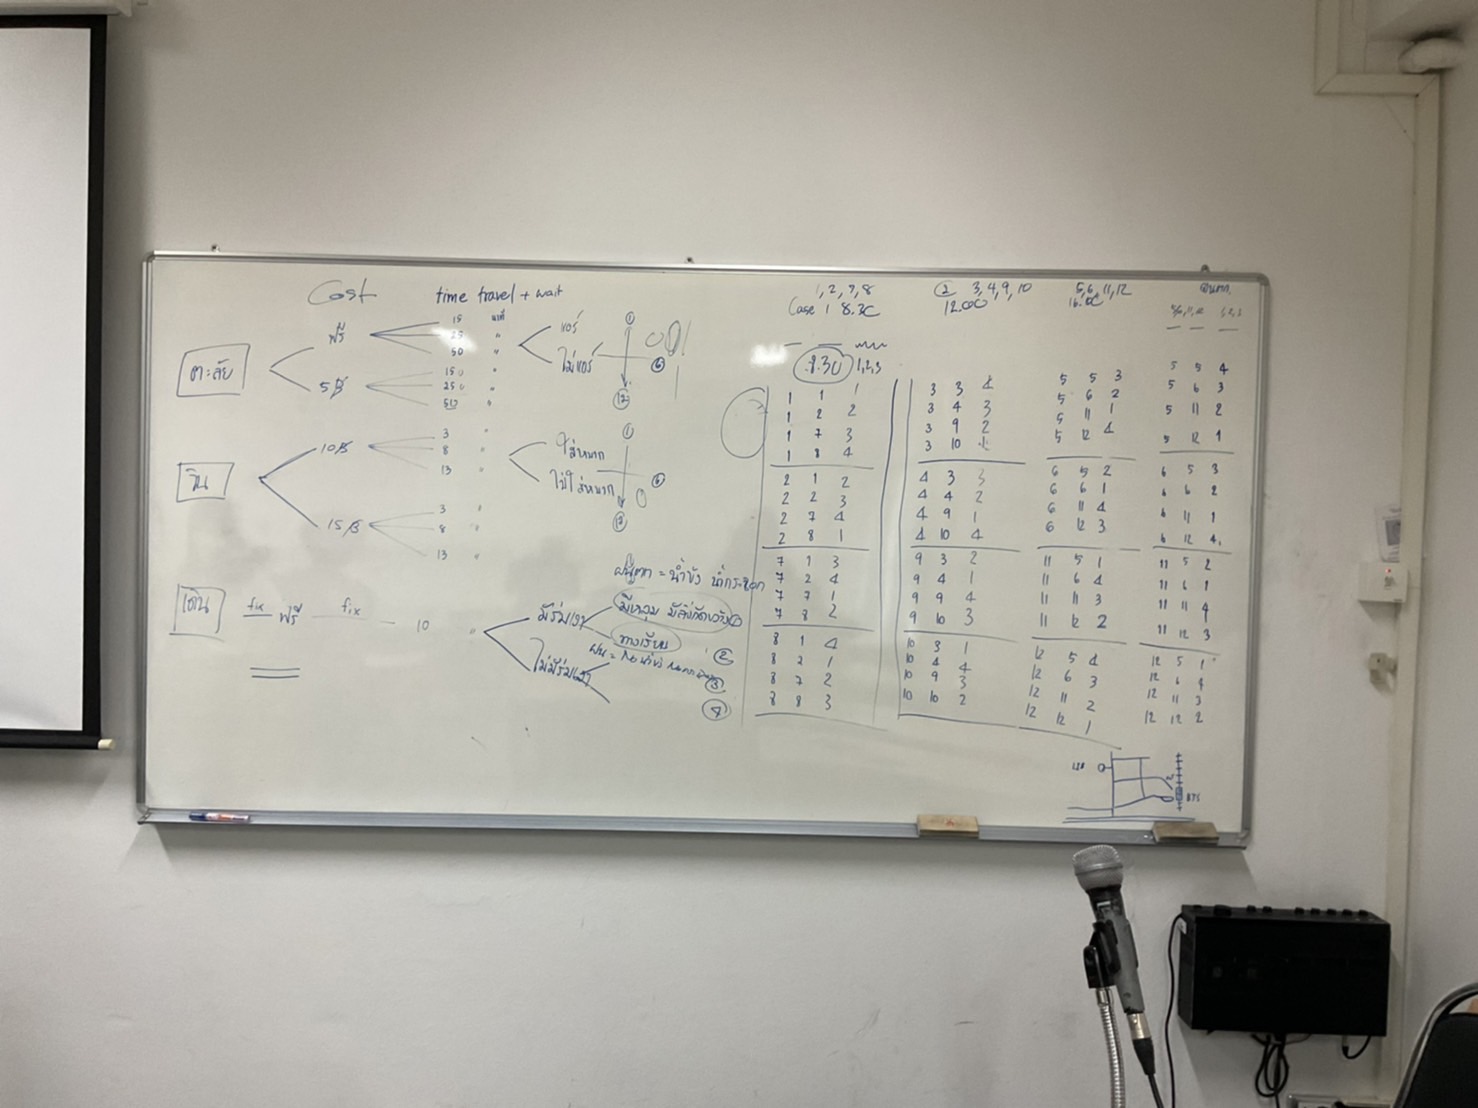 Cost
time travel + wait
ตะลัย
ฟรี
15 นาที
25 "
50 "
5฿
150 "
250 "
50 "
แอร์
ไม่แอร์
1
6
12
วิน
10฿
3 "
8 "
13 "
15฿
3 "
8 "
13 "
ใส่หมวก
ไม่ใส่หมวก
1
6
12
เดิน
fix ฟรี fix
10 "
มีร่มเงา
ไม่มีร่มเงา
ฝนตก = น้ำขัง น้ำกระฉอก
มีหลุม มีสิ่งกีดขวาง 1
ทางเรียบ
2
3
4
1, 2, 7, 8
Case 1 8.30
8.30 1,2,3
1 1 1
1 2 2
1 7 3
1 8 4
2 1 2
2 2 3
2 7 4
2 8 1
7 1 3
7 2 4
7 7 1
7 8 2
8 1 4
8 2 1
8 7 2
8 8 3
2 3, 4, 9, 10
12.00
3 3 4
3 4 3
3 9 2
3 10 1
4 3 3
4 4 2
4 9 1
4 10 4
9 3 2
9 4 1
9 9 4
9 10 3
10 3 1
10 4 4
10 9 3
10 10 2
5, 6, 11, 12
16.00
5 5 3
5 6 2
5 11 1
5 12 4
6 5 2
6 6 1
6 11 4
6 12 3
11 5 1
11 6 4
11 11 3
11 12 2
12 5 4
12 6 3
12 11 2
12 12 1
ฝนตก
5,6,11,12 1,2,3
5 5 4
5 6 3
5 11 2
5 12 1
6 5 3
6 6 2
6 11 1
6 12 4
11 5 2
11 6 1
11 11 4
11 12 3
12 5 1
12 6 4
12 11 3
12 12 2
BTS